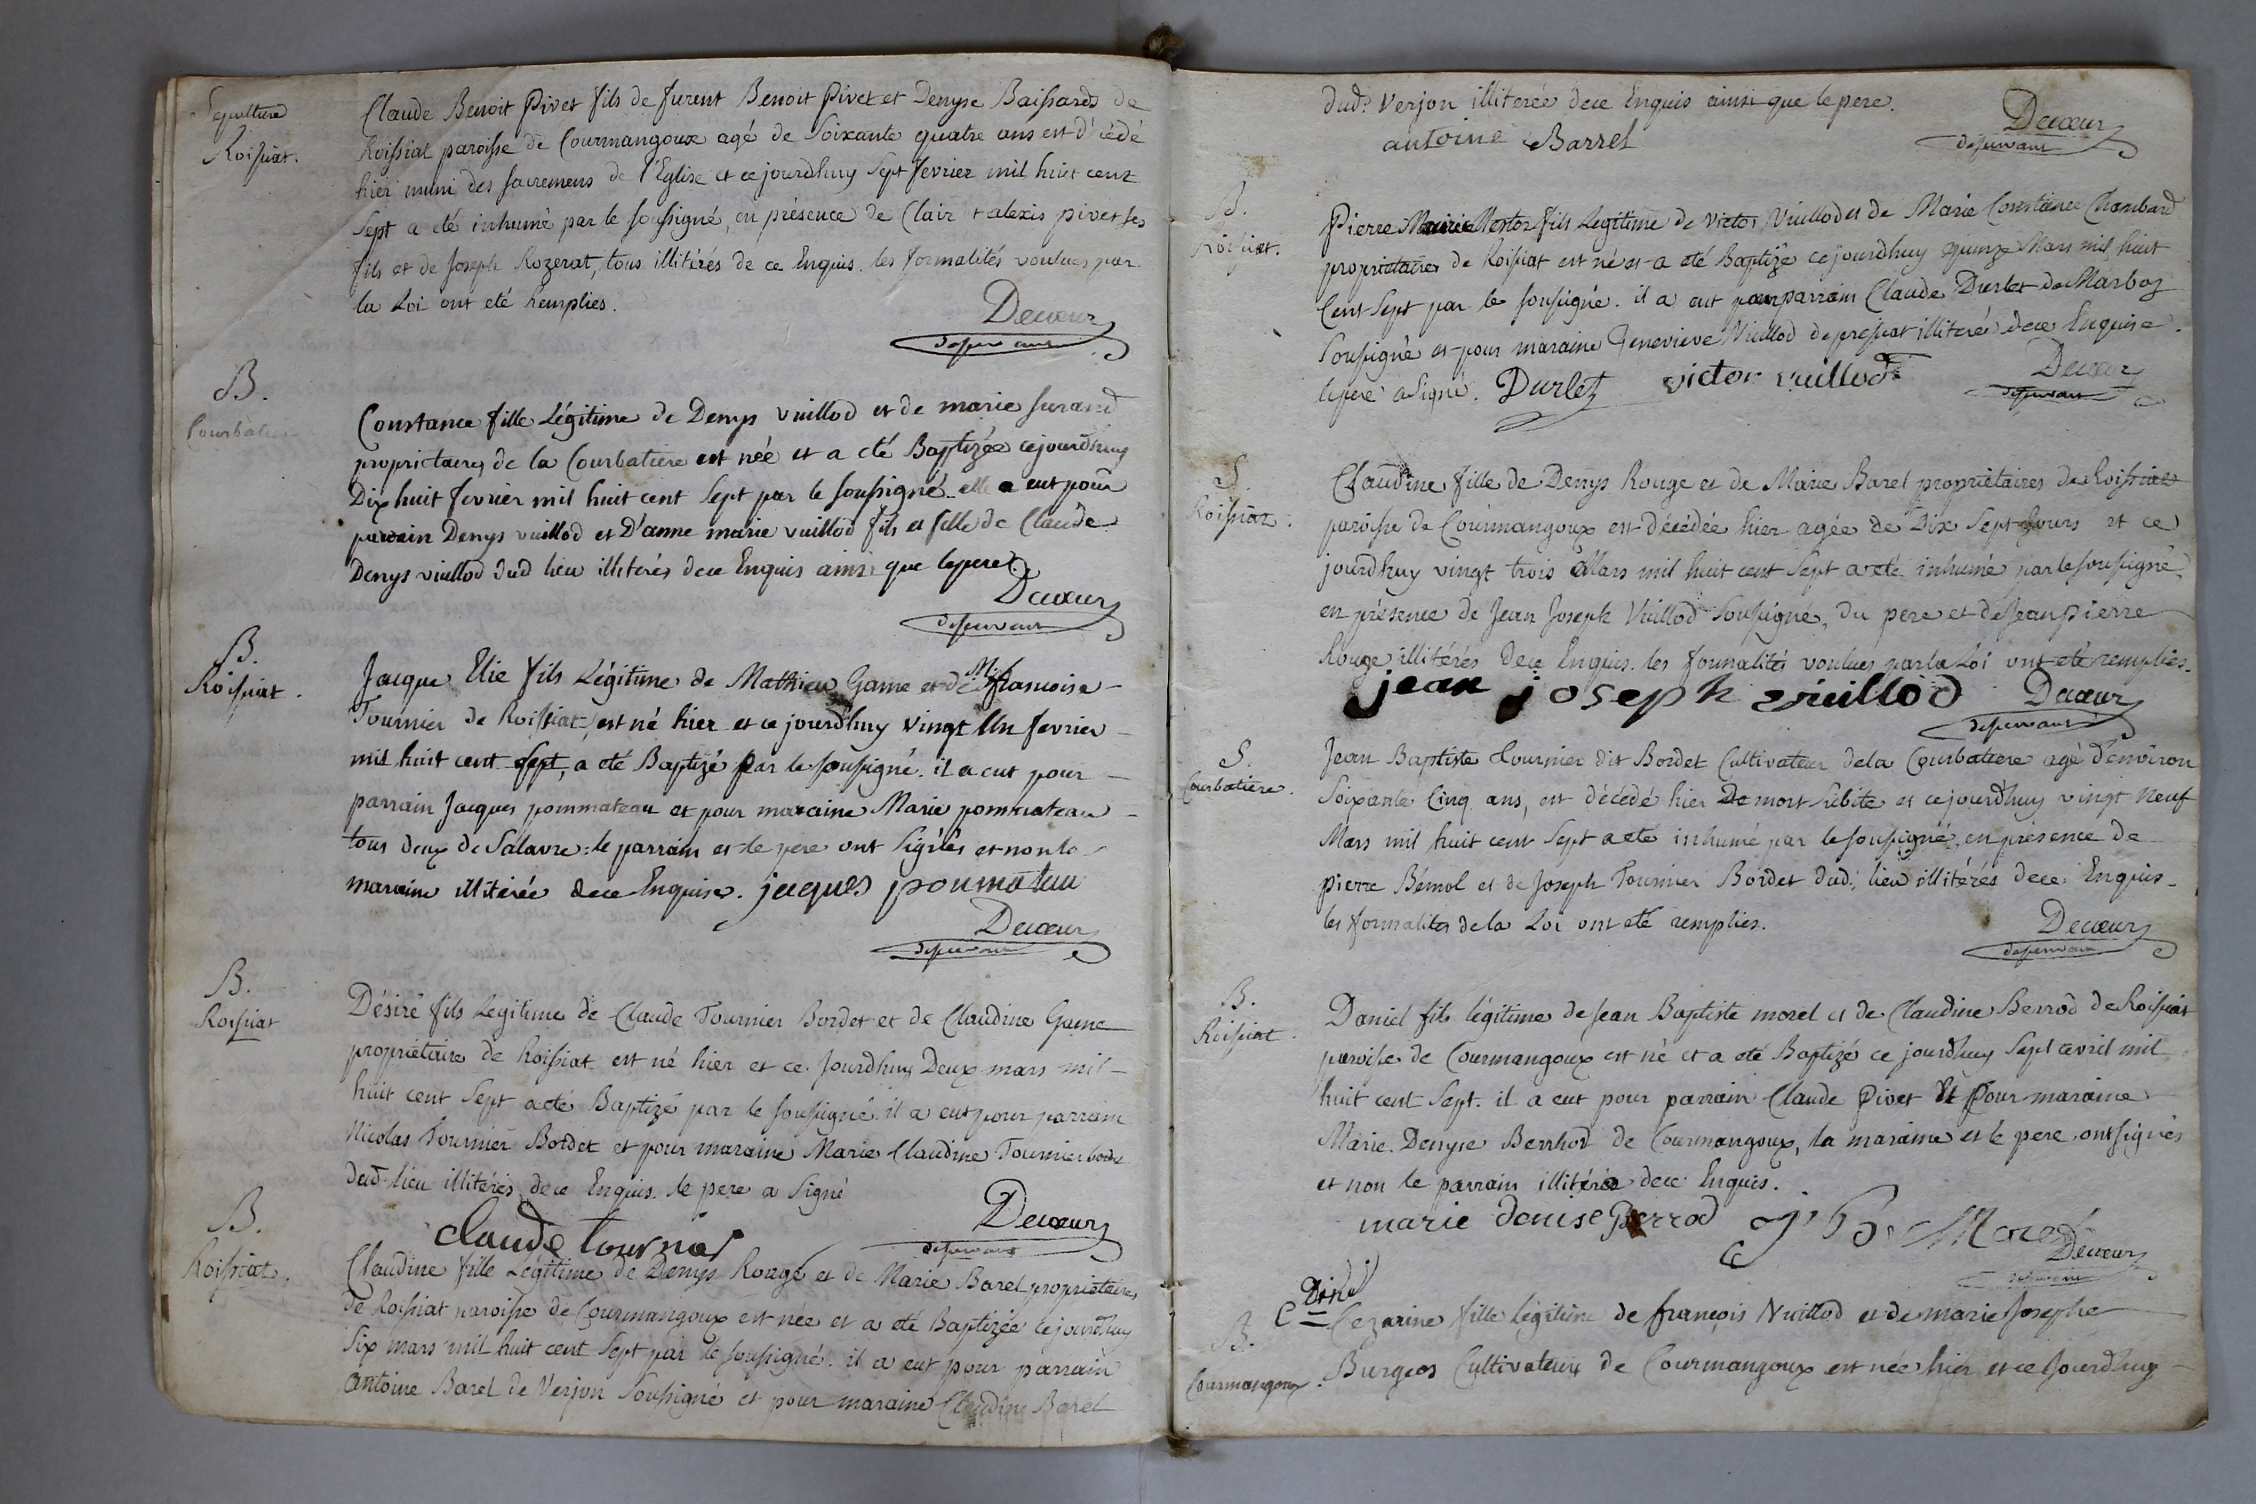 Sepulture
Roissiat.
Claude Benoit Pivet fils de furent Benoit Pivet et Denyse Baissard de
Roissiat paroisse de Courmangoux agé de Soixante quatre ans est décédé
hier muni des sacremens de l'Eglise et ce jourdhuy Sept fevrier mil huit cent
Sept a eté inhumé par le soussigné, en présence de Clair et alexis pivet ses
fils et de Joseph Rozerat, tous illitérés de ce Enquis. les formalités voulues par
la Loi ont eté remplies.
Decoeur
desservant
B.
Courbatiere
Constance fille Légitime de Denys vuillod et de marie surand
proprietaires de la Courbatiere est née et a eté Baptizée cejourdhuy
Dix huit fevrier mil huit cent Sept par le soussigné. elle a eut pour
parain Denys vuillod et D'anne marie vuillod fils et fille de Claude
Denys viullod dud lieu illiterés dece Enquis ainsi que lepere.
Decoeur
desservant
B.
Roissiat.
Jacque Elie fils Légitime de Mathieu Game et de Mie francoise
Tournier de Roissiat, est né hier et ce jourdhuy vingt Un fevrier
mil huit cent Sept, a eté Baptizé par le soussigné. il a eut pour
parrain Jacques pommateau et pour maraine Marie pommateau
tous deux de Salavre: le parrain et le pere ont Signés et non la
maraine illiterée dece Enquise. jaques poumatau
Decoeur
desservant
B.
Roissiat
Désiré fils Legitime de Claude Tournier Bordet et de Claudine Game
propriétaire de Roissiat est né hier et ce Jourdhuy Deux mars mil
huit cent Sept a eté Baptizé par le soussigné. il a eut pour parrain
Nicolas Tournier Bordet et pour maraine Marie Claudine Tournier bordet
dud. lieu illitérés dece Enquis. le pere a Signé
Decoeur
desservant
claude tournier
B.
Roissiat.
Claudine fille Légitime de Denys Rouge et de Marie Barel proprietaires
de Roissiat paroisse de Courmangoux est née et a eté Baptizée cejourdhuy
Six mars mil huit cent Sept par le soussigné. il a eut pour parrain
antoine Barel de Verjon Soussigné et pour maraine Claudine Barel
dud. Verjon illiterée dece Enquis ainsi que le pere.
antoine Barrel
Decoeur
desservant
B.
Roissiat.
Pierre Nestor fils Legitime de Victor Viullod et de Marie Constance Chambard
proprietaires de Roissiat est né et a eté Baptizé cejourdhuy quinze Mars mil huit
Cent Sept par le soussigné. il a eut pour parrain Claude Durlet de Marboz
Soussigné et pour maraine Genevieve Viullod de pressiat illiterée dece Enquise.
lepere a Signé. Durlet victor vuillod
Decoeur
desservant
S.
Roissiat.
Claudine fille de Denys Rouge et de Marie Barel propriétaires de Roissiat
paroisse de Courmangoux est décédée hier agée de Dix Sept Jours et ce
jourdhuy vingt trois Mars mil huit cent Sept a eté inhumé par le soussigné,
en présence de Jean Joseph Viullod Soussigné, du pere et de Jean pierre
Rouge illitérés dece Enquis. les formalités voulues par la Loi ont eté remplies.
jean joseph vuillod
Decoeur
desservant
S.
Courbatiere.
Jean Baptiste Tournier dit Bordet Cultivateur dela Courbatiere agé d'environ
Soixante Cinq ans, est décédé hier De mort subite et cejourdhuy vingt Neuf
Mars mil huit cent Sept a eté inhumé par le soussigné, en présence de
pierre Bémol et de Joseph Tournier Bordet dud. lieu illitérés dece Enquis
les formalités de la Loi ont eté remplies.
Decoeur
desservant
B.
Roissiat.
Daniel fils légitime de Jean Baptiste morel et de Claudine Berrod de Roissiat
paroisse de Courmangoux est né et a eté Baptizé ce jourdhuy Sept avril mil
huit cent Sept. il a eut pour parrain Claude Pivet et Pour maraine
Marie Denyse Berrhod de Courmangoux, la maraine et le pere ont signés
et non le parrain illitéré dece Enquis.
marie denise Berrod J. B. Morel
Decoeur
desservant
B.
Courmangoux.
Cezarine fille légitime de françois Nuillod et de marie Josephe
Burgeos Cultivateurs de Courmangoux est née hier et ce Jourdhuy